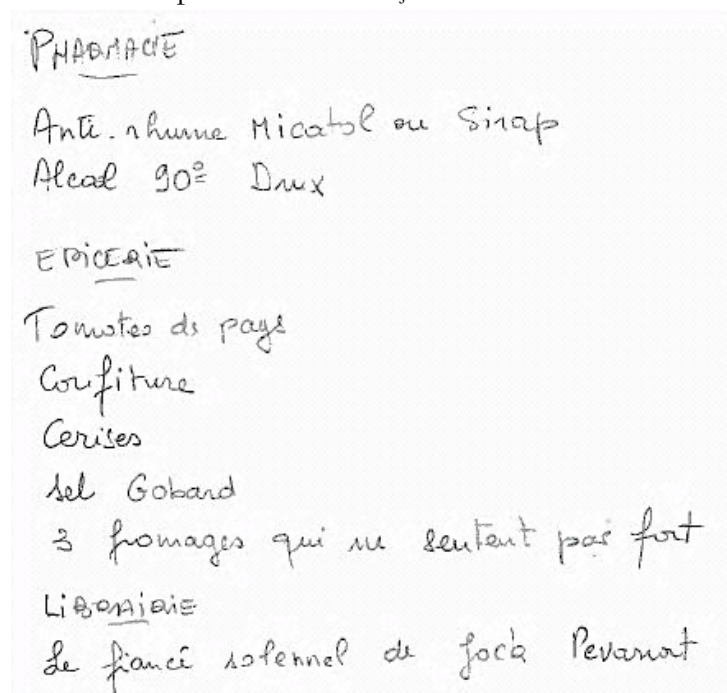 PHARMACIE
Anti-rhume Micatol ou Sirap
Alcool 90° Drux
EPICERIE
Tomates de pays
Confiture
Cerises
Sel Gobard
3 fromages qui ne sentent pas fort
LIBRAIRIE
Le fiancé solennel de